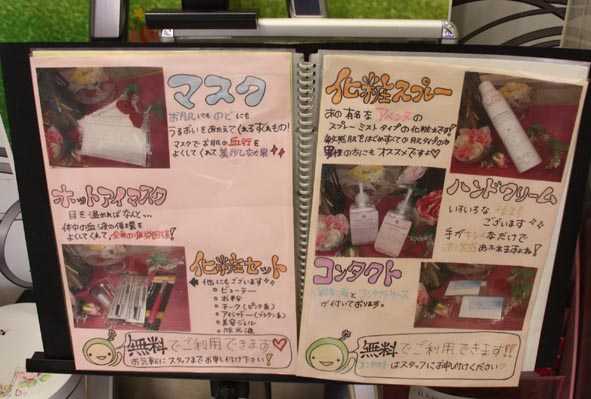 マスク
お肌にものどにも
うるおいをあたえてくれるすぐれもの!
マスクでお肌の血行を
よくしてくれて美肌効果
ホットアイマスク
目を温めればなんと…
体中の血液の循環を
よくしてくれて
化粧セット
他にもございます
ビューラー
チーク
アイシャドー
美容ジェル
無料でご利用できます♡
お気軽にスタッフまでお申し付け下さい!
化粧スプレー
あの有名なアベンヌの
スプレーミストタイプの化粧水です!
敏感肌をはじめすべての肌タイプの方
男性の方にもオススメですよ♡
ハンドクリーム
いろいろな
ございます
手がキレイなだけで
あふれますよね!
コンタクト
保存液とコンタクトケース
が付いております。
無料でご利用できます!!
コンタクトはスタッフにお申し付けください♡